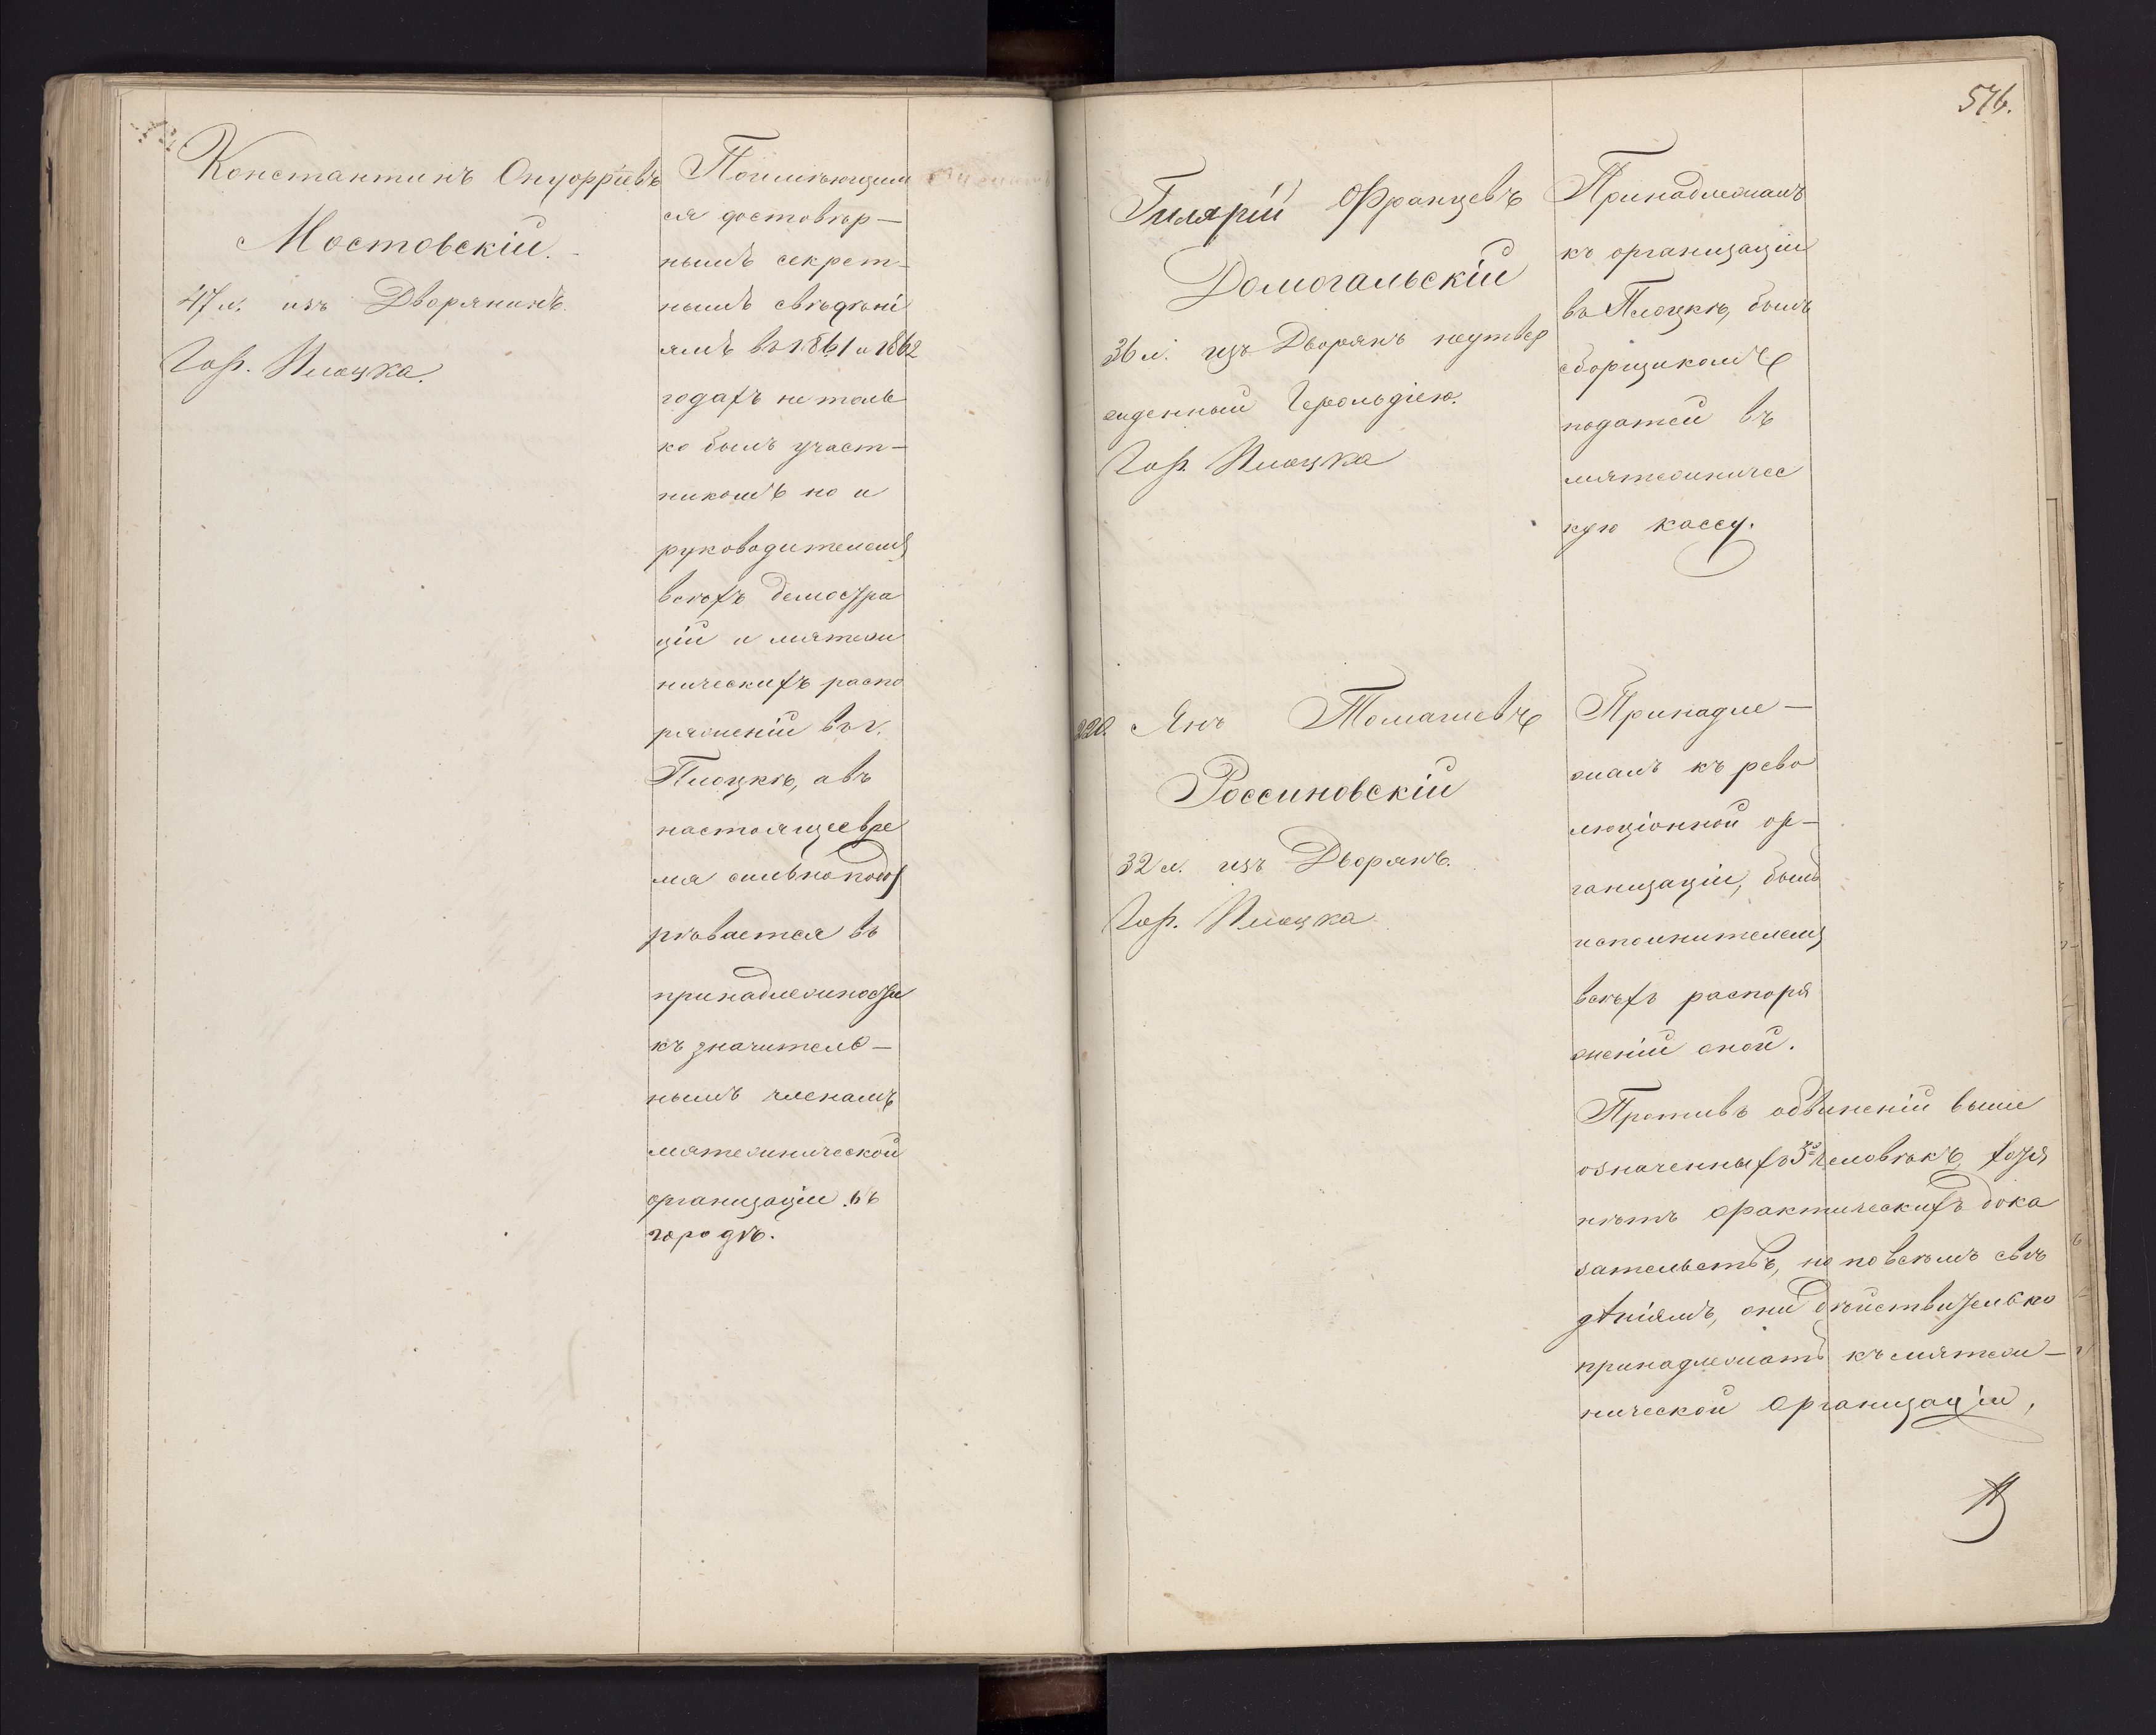 Константинъ Онуофріевъ
Мостовскій.
47 л. изъ Дворянинъ.
Гор. Плоцка.
По имѣющим
ся достовѣр-
нымъ секрет-
нымъ свѣдѣні
ямъ въ 1861 и 1862
годахъ не толь
ко былъ участ-
никомъ но и
руководителемъ
всѣхъ демостра
цій и мятеж
ническихъ распо
ряженій въ г.
Плоцкѣ, а въ
настоящее вре
мя сильно подоз
рѣвается въ
принадлежности
къ значитель-
нымъ членамъ
мятежнической
организаціи въ
городѣ.
576.
Гилярій Францевъ
Домогальскій
36 л. изъ Дворянъ неутвер
жденный Герольдіею.
Гор. Плоцка
Принадлежалъ
къ организаціи
въ Плоцкѣ, былъ
сборщикомъ
податей въ
мятежничес
кую кассу.
220. Янъ Томашевъ
Россиновскій
32 л. изъ Дворянъ.
Гор. Плоцка
Принадле-
жалъ къ рево
люціонной ор-
ганизаціи, былъ
исполнителемъ
всѣхъ распоря
женій оной.
Противъ обвиненій выше
означенныхъ 3хъ человѣкъ, хотя
нѣтъ фактическихъ дока
зательствъ, но по всѣмъ свѣ
дѣніямъ, они дѣйствительно
принадлежатъ къ мятеж-
нической организаціи,